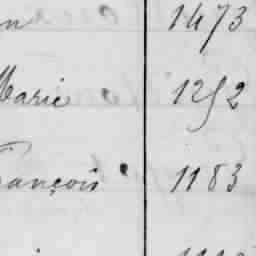 n 1473
Marie 1252
François 1183